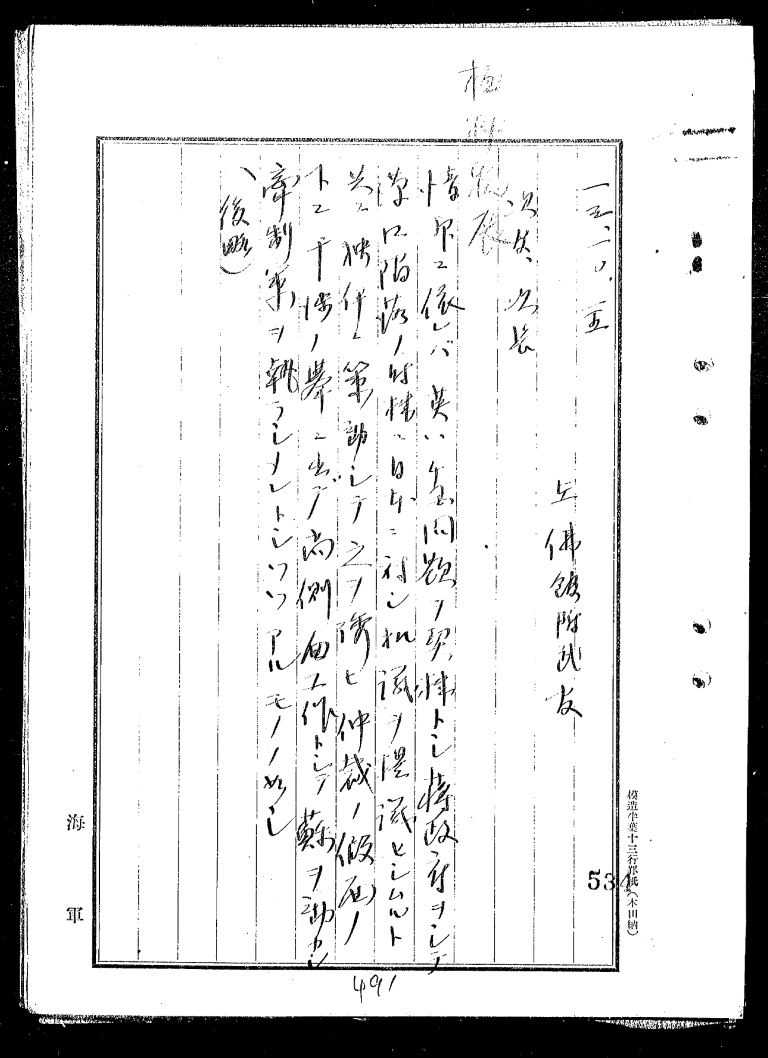 極秘電展
一三、一〇、五
在佛館附武官
次官、次長
情報ニ依レバ英ハ金問題ヲ契機トシ蔣政府ヲシテ
漢口陥落ノ時機ニ日本ニ対シ和議ヲ提議セシムルト
共ニ独伊ニ策動シテ之ヲ誘ヒ仲裁ノ仮面ノ
下ニ干渉ノ挙ニ出デ尚側面工作トシテ蘇ヲ動カシ
牽制策ヲ執ラシメントシツツアルモノノ如シ
(後略)
海軍
模造半葉十三行罫紙(本田納)
534
491